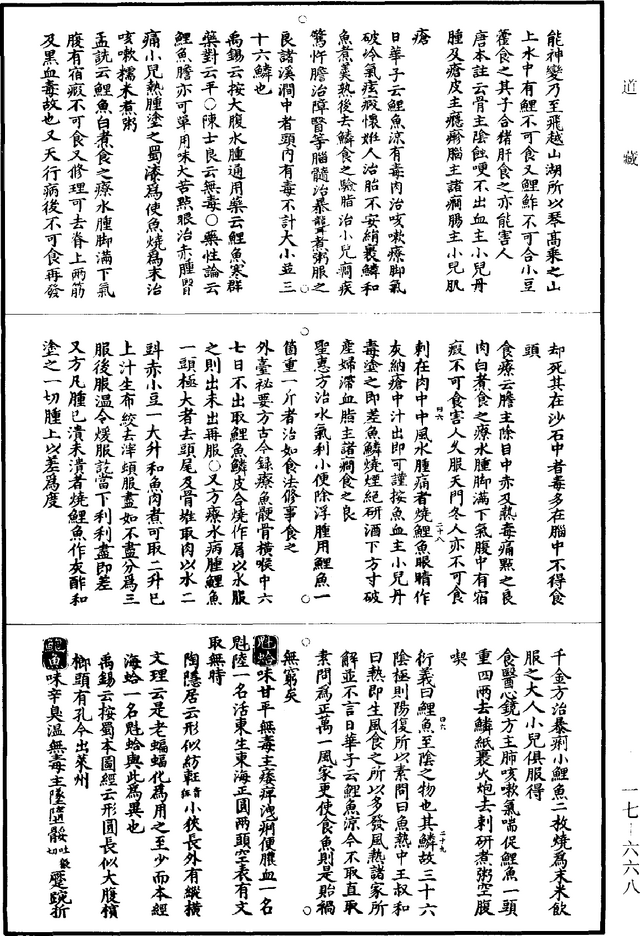 道藏
能神變乃至飛越山湖所以琴高乘之山
上水中有鯉不可食又鯉鮓不可合小豆
藿食之其子合猪肝食之亦能害人
唐本註云骨主陰蝕哽不出血主小兒丹
腫及瘡皮主癮𤺋腦主諸癎腸主小兒肌
瘡
日華子云鯉魚涼有毒肉治咳嗽療脚氣
破冷氣痃瘕懷姙人治胎不安絹裹鱗和
魚煮羹熟後去鱗食之驗脂治小兒癎疾
驚忤膽治障瞖等腦髓治暴聾煮粥服之
良諸溪澗中者頭内有毒不計大小並三
十六鱗也
禹錫云按大腹水腫通用藥云鯉魚寒群
藥對云平○陳士良云無毒○藥性論云
鯉魚膽亦可單用味大苦點眼治赤腫瞖
痛小兒熱腫塗之蜀漆爲使魚燒爲末治
咳嗽糯米煮粥
孟詵云鯉魚白煮食之療水腫脚滿下氣
腹有宿瘕不可食又修理可去脊上兩筋
及黑血毒故也又天行病後不可食再發
却死其在沙石中者毒多在腦中不得食
頭
食療云膽主除目中赤及熱毒痛點之良
肉白煮食之療水腫脚滿下氣腹中有宿
瘕不可食害人久服天門冬人亦不可食
四六 二十八
刺在肉中中風水腫痛者燒鯉魚眼睛作
灰納瘡中汁出即可謹按魚血主小兒丹
毒塗之即差魚鱗燒煙絕研酒下方寸破
產婦滯血脂主諸癎食之良
聖惠方治水氣利小便除浮腫用鯉魚一
箇重一斤者治如食法修事食之
外臺祕要方古今録療魚骾骨橫喉中六
七日不出取鯉魚鱗皮合燒作屑以水服
之則出未出再服○又方療水病腫鯉魚
一頭極大者去頭尾及骨唯取肉以水二
㪷赤小豆一大升和魚肉煮可取二升已
上汁生布絞去滓頓服盡如不盡分爲三
服後服溫令煖服訖當下利利盡即差
又方凡腫已潰未潰者燒鯉魚作灰酢和
塗之一切腫上以差爲度
千金方治暴痢小鯉魚二枚燒爲末米飲
服之大人小兒俱服得
食醫心鏡方主肺咳嗽氣喘促鯉魚一頭
重四兩去鱗紙裹火炮去刺研煮粥空腹
喫
四六 二十九
衍義曰鯉魚至陰之物也其鱗故三十六
陰極則陽復所以素問曰魚熱中王叔和
曰熱即生風食之所以多發風熱諸家所
解並不言日華子云鯉魚涼今不取直取
素問爲正萬一風家更使食魚則是貽禍
無窮矣
魁蛤味甘平無毒主痿痺洩痢便膿血一名
魁陸一名活東生東海正圓兩頭空表有文
取無時
陶隱居云形似紡軖音狂小狹長外有縱橫
文理云是老蝙蝠化爲用之至少而本經
海蛤一名魁蛤與此爲異也
禹錫云按蜀本圖經云形圓長似大腹檳
榔頭有孔今出萊州
鮑魚味辛臭溫無毒主墜墮骽吐猥切蹷踠折
一七—六六八